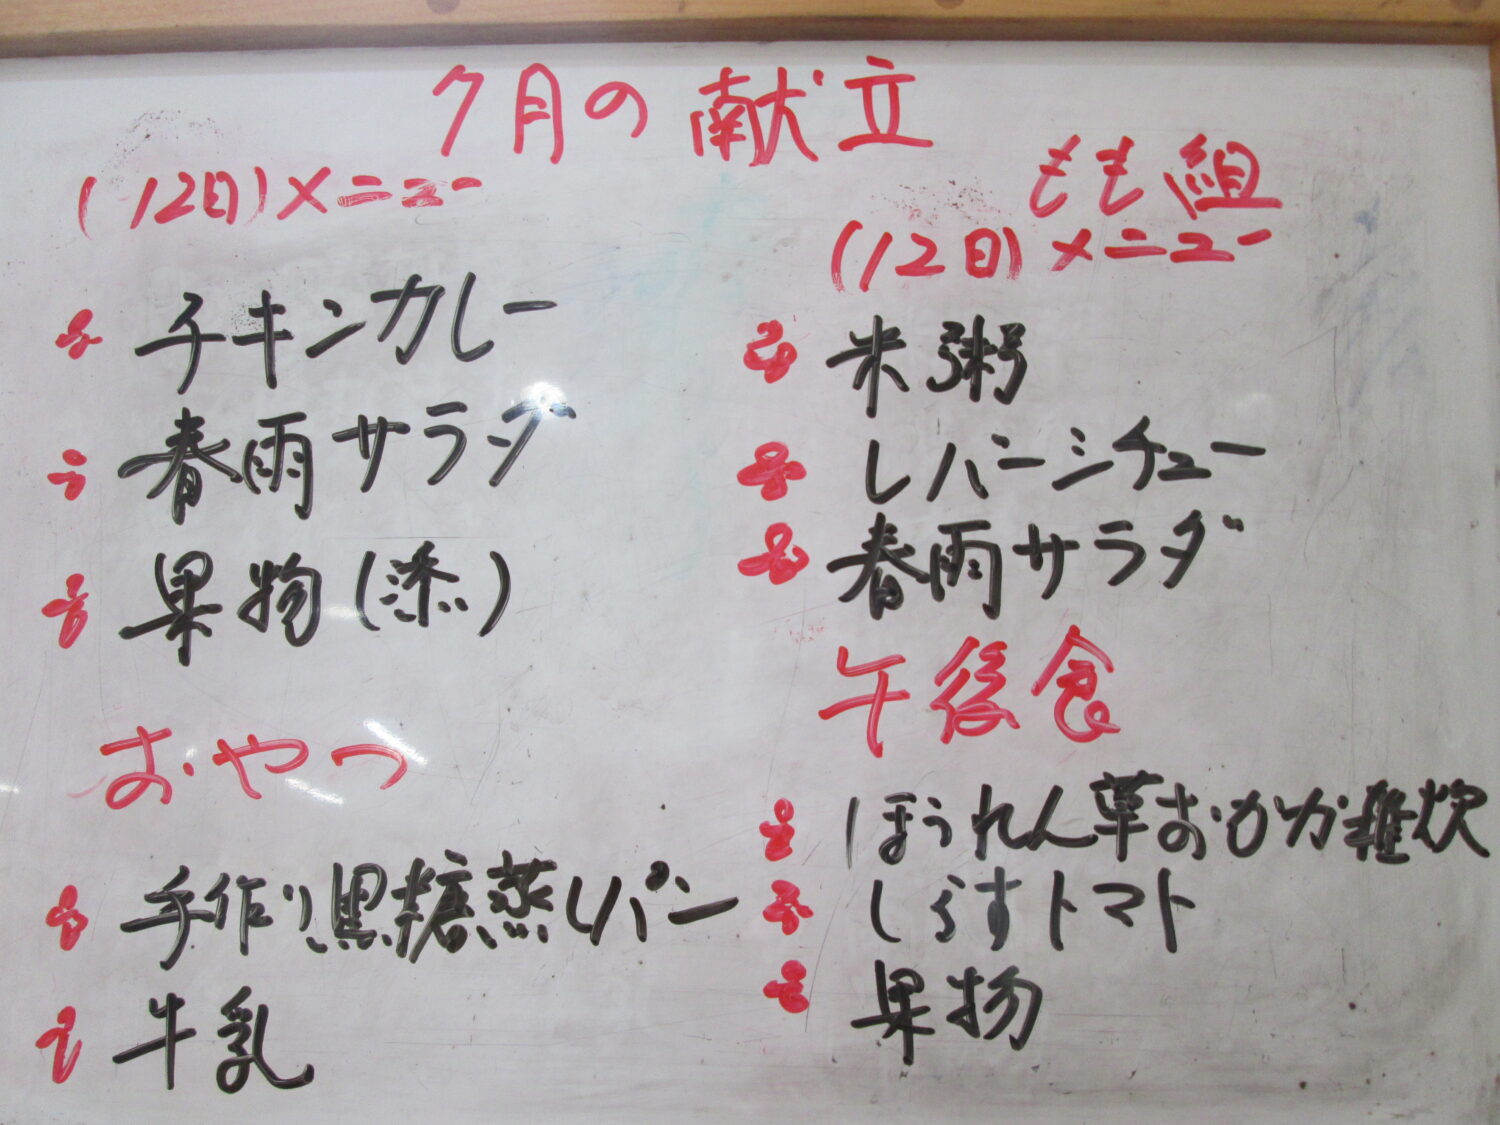 7月の献立
(12日)メニュー
チキンカレー
春雨サラダ
果物(添)
おやつ
手作り黒糖蒸しパン
牛乳
もも組
(12日)メニュー
米粥
レバーシチュー
春雨サラダ
午後食
ほうれん草おかか雑炊
しらすトマト
果物